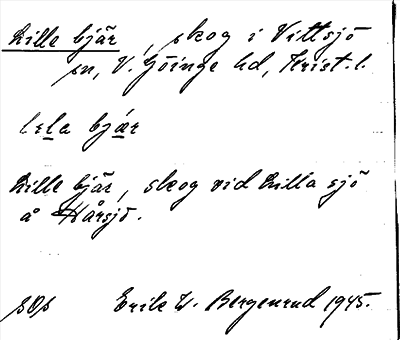 Lille bjär, skog i Vittsjö
sn, V. Göinge hd, Krist. l.
lεla bjær
Lille bjär, skog vid Lilla sjö
å Hårsjö.
SOS Erik W. Bergenrud 1945.